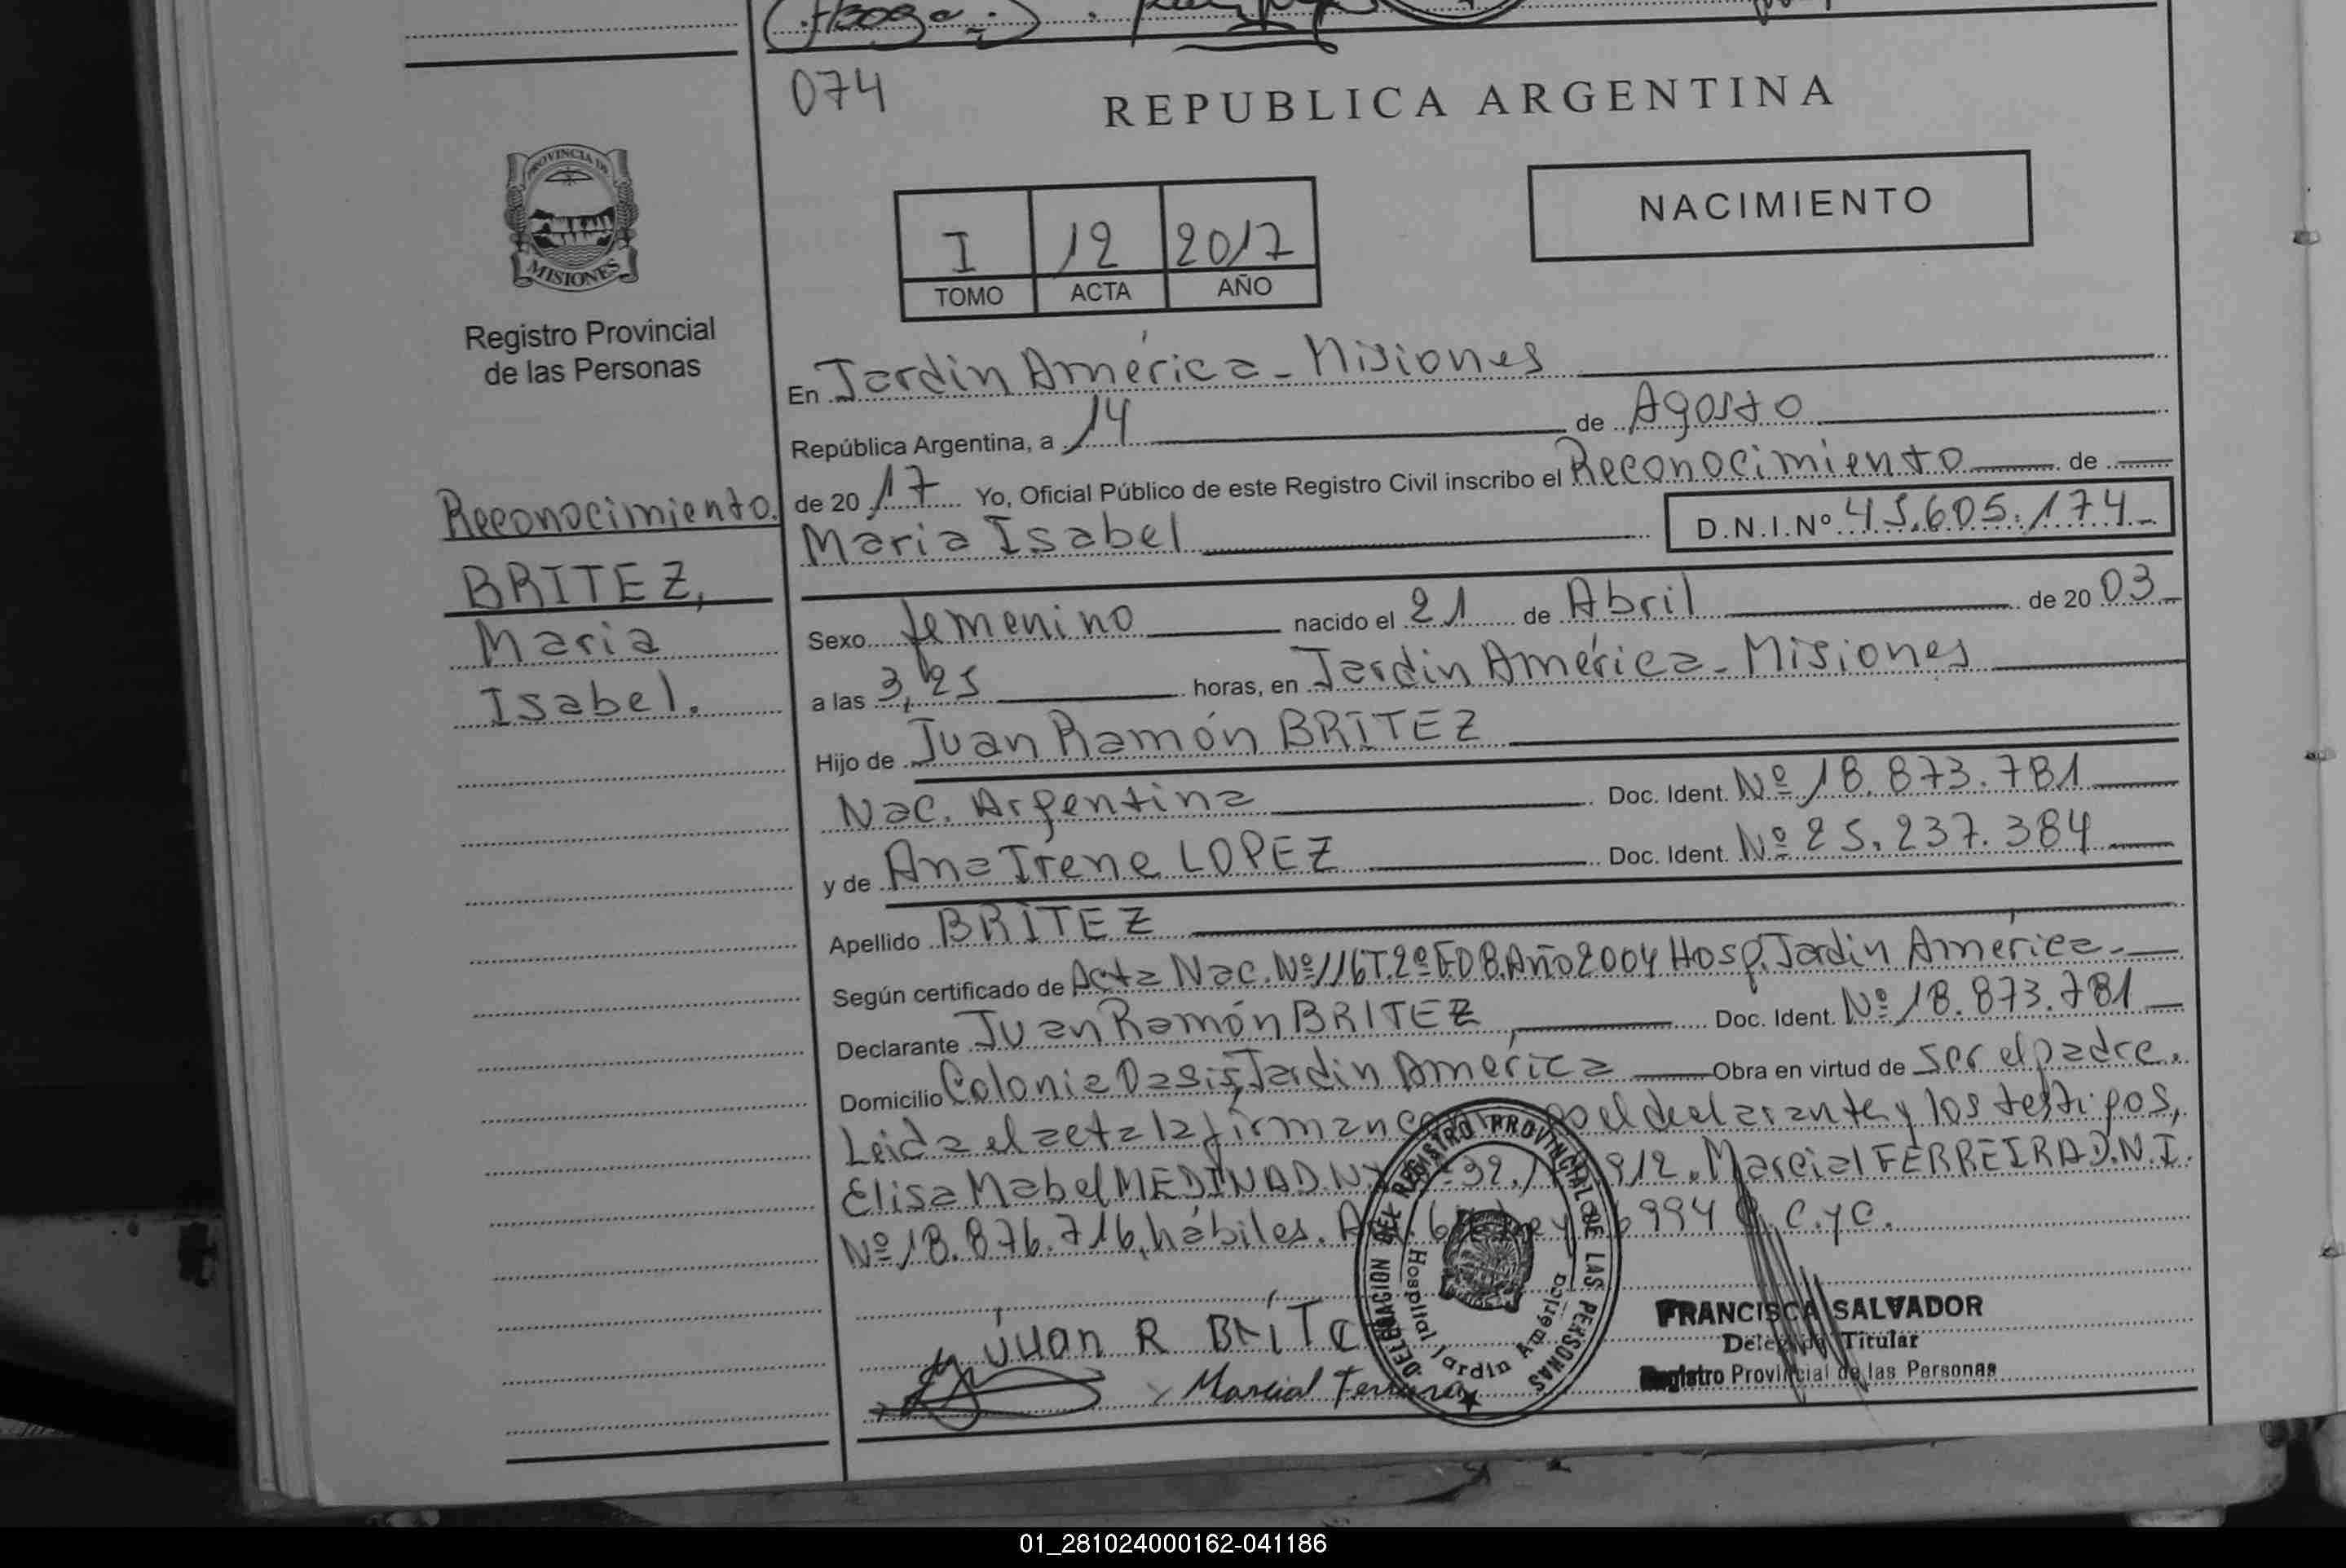 074
REPUBLICA ARGENTINA
NACIMIENTO
I 12 2017
TOMO ACTA AÑO
PROVINCIA DE
MISIONES
Registro Provincial
de las Personas
Reconocimiento.
BRITEZ,
Maria
Isabel.
En Jardín América - Misiones
República Argentina, a 14 de Agosto
de 20 17 Yo, Oficial Público de este Registro Civil inscribo el Reconocimiento de
Maria Isabel D.N.I.Nº 45.605.174
Sexo femenino nacido el 21 de Abril de 20 03
a las 3,25 horas, en Jardín América - Misiones
Hijo de Juan Ramón BRITEZ
Nac. Argentina Doc. Ident. Nº 18.873.781
y de Ana Irene LOPEZ Doc. Ident. Nº 25.237.384
Apellido BRITEZ
Según certificado de Acta Nac. Nº 116 T.2º Año 2004 Hosp. Jardín América
Declarante Juan Ramón BRITEZ, Doc. Ident. Nº 18.873.781
Domicilio Colonia Oasis, Jardín América Obra en virtud de ser el padre.
Leida el acta la firman el declarante y los testigos,
Elisa Mabel MEDINA D.N.I. 32. 912. Marcial FERREIRA D.N.I.
Nº 18.876.716, hábiles. C.yC.
Juan R BRíTe
Marcial Ferreira
DELEGACION DEL REGISTRO PROVINCIAL DE LAS PERSONAS
Hospital Jardín América
FRANCISCA SALVADOR
Delegada Titular
Registro Provincial de las Personas
01_281024000162-041186